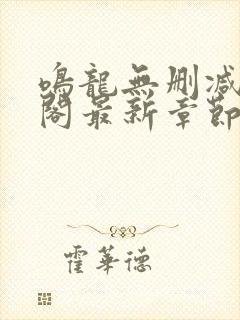 鳴龍無刪减
閣最新章節
霍華德